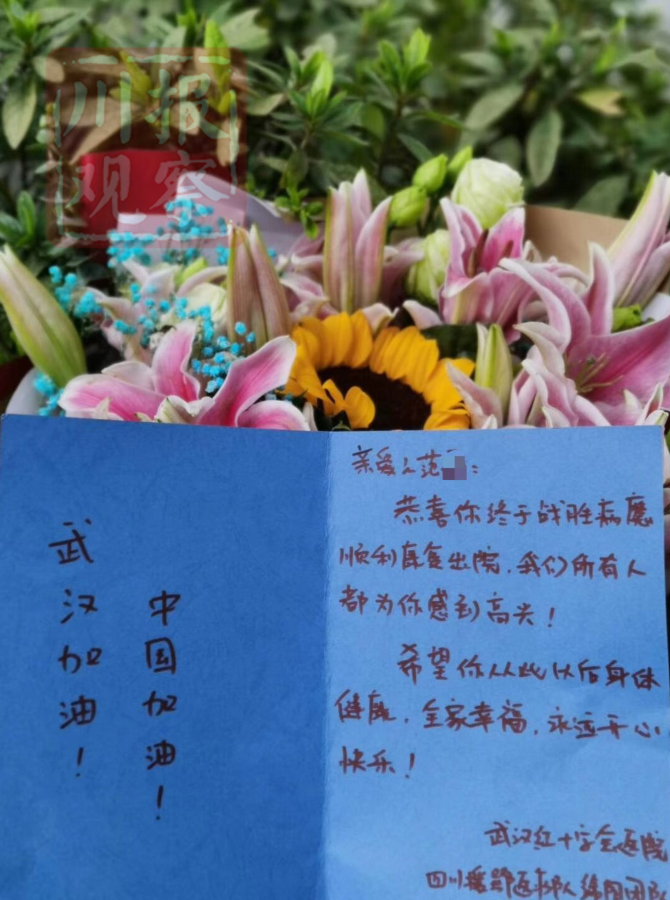 川报
观察
武汉加油！
中国加油！
亲爱的范
恭喜你终于战胜病魔
顺利康复出院，我们所有人
都为你感到高兴！
希望你从此以后身体
健康，全家幸福，永远开心
快乐！
武汉红十字会医院
四川援鄂医疗队